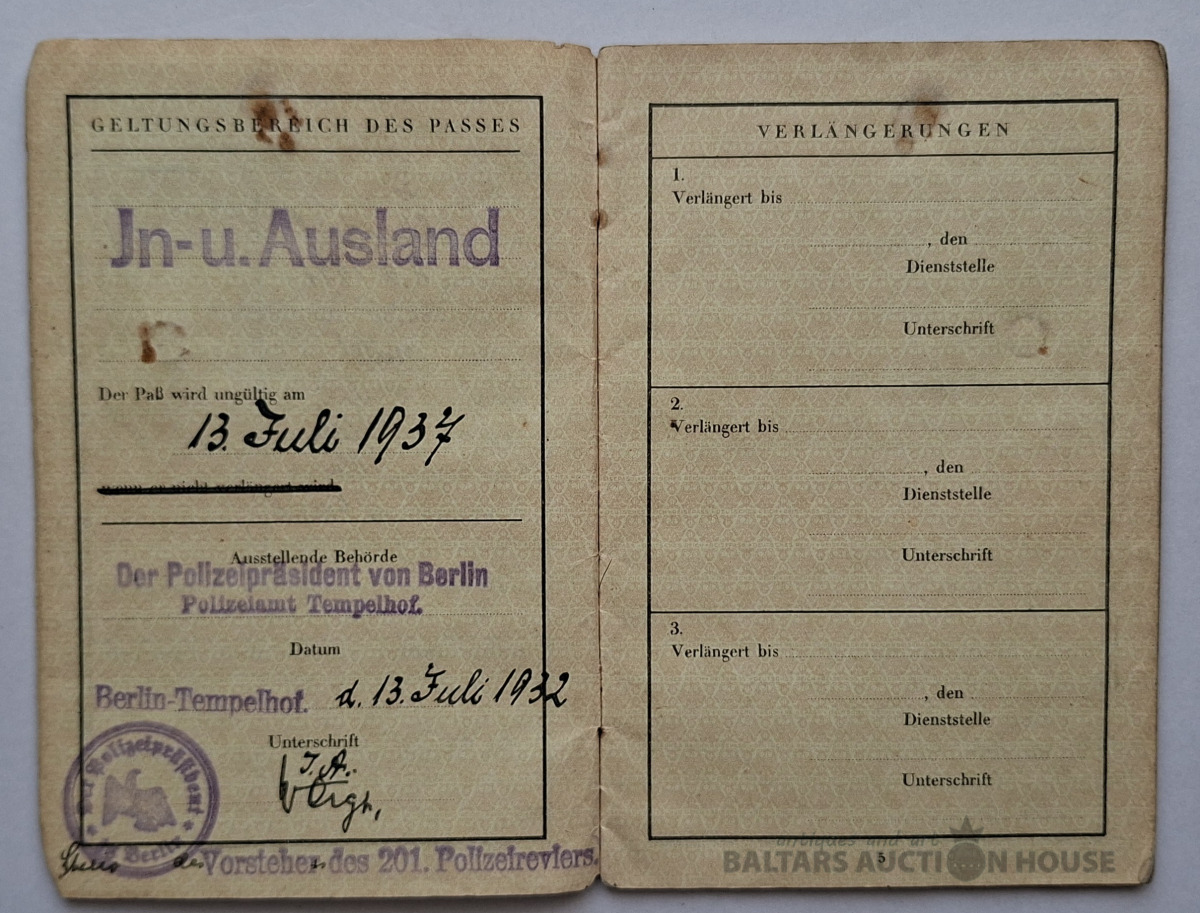 GELTUNGSBEREICH DES PASSES
Jn- u. Ausland
Der Paß wird ungültig am
13. Juli 1937
wenn er nicht verlängert wird
Ausstellende Behörde
Der Polizeipräsident von Berlin
Polizeiamt Tempelhof.
Datum
Berlin-Tempelhof. d. 13. Juli 1932
Unterschrift
J. A.
Der Polizeipräsident
Berlin
des Vorsteher des 201. Polizeireviers.
VERLÄNGERUNGEN
1.
Verlängert bis
, den
Dienststelle
Unterschrift
2.
Verlängert bis
, den
Dienststelle
Unterschrift
3.
Verlängert bis
, den
Dienststelle
Unterschrift
5
antiques and art
BALTARS AUCTION HOUSE